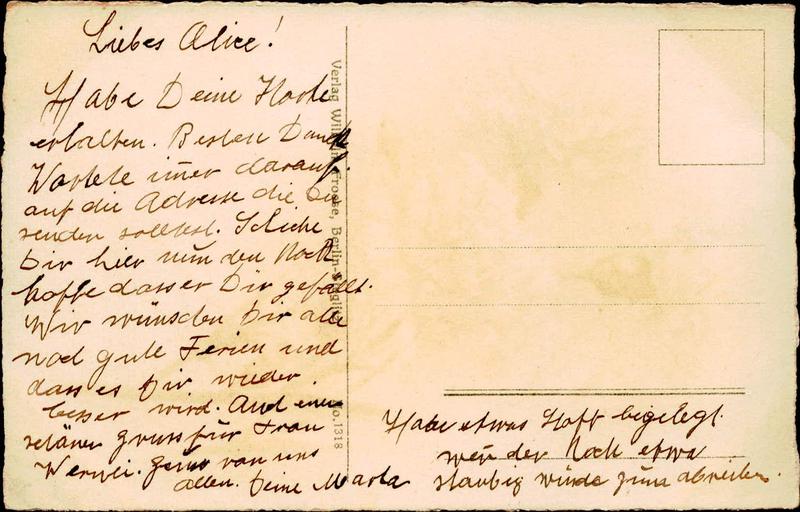 Liebes Alice!
Habe Deine Karte
erhalten. Besten Dank
Wartete imer darauf.
auf die Adresse die Du
senden solltest. Schicke
Dir hier nun den Rock
hoffe dass er Dir gefällt.
Wir wünschen Dir alle
noch gute Ferien und
dass es Dir wieder
besser wird. Und einen
schönen gruss für Frau
von uns
allen. Deine Marta
Habe etwas Stoff beigelegt
wen der Rock etwa
staubig würde zum abreiben.
Verlag Wilhelm Froese, Berlin-Steglitz
No. 1318